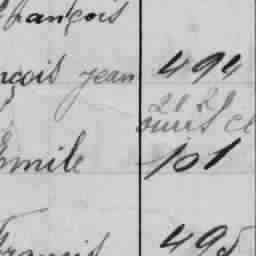 François
nçois Jean 494
21 21
Emile 101
Francis 495